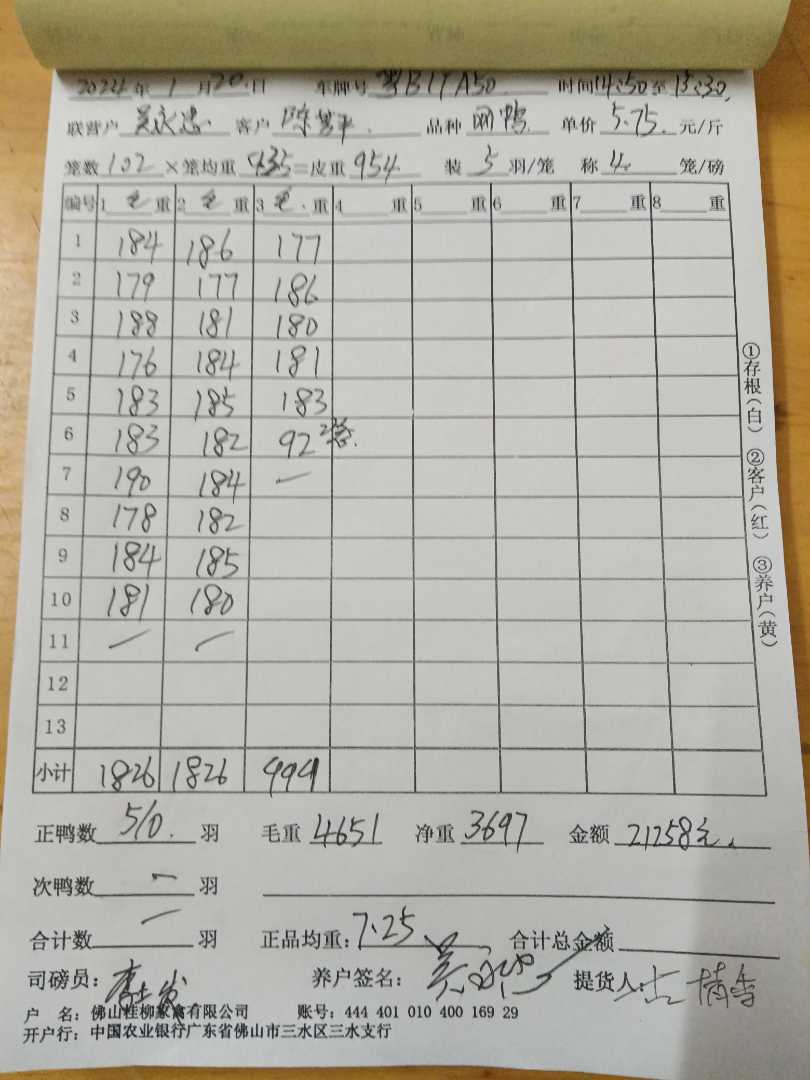 2024年 1 月 20 日 车牌号 粤B17A50 时间 14:50 至 15:30
联营户 吴永忠 客户 陈 平 品种 网鸭 单价 5.75 元/斤
笼数 102 ×笼均重 9.35 =皮重 954 装 5 羽/笼 称 4 笼/磅
编号 1 毛 重 2 毛 重 3 毛 重 4 重 5 重 6 重 7 重 8 重
1 184 186 177
2 179 177 186
3 188 181 180
4 176 184 181
5 183 185 183
6 183 182 92 2笼
7 190 184 —
8 178 182
9 184 185
10 181 180
11 — —
12
13
小计 1826 1826 999
正鸭数 510 羽 毛重 4651 净重 3697 金额 21258元
次鸭数 — 羽
合计数 — 羽 正品均重: 7.25 合计总金额
司磅员: 养户签名: 提货人:
户 名: 佛山桂柳家禽有限公司 账号: 444 401 010 400 169 29
开户行: 中国农业银行广东省佛山市三水区三水支行
①存根(白) ②客户(红) ③养户(黄)